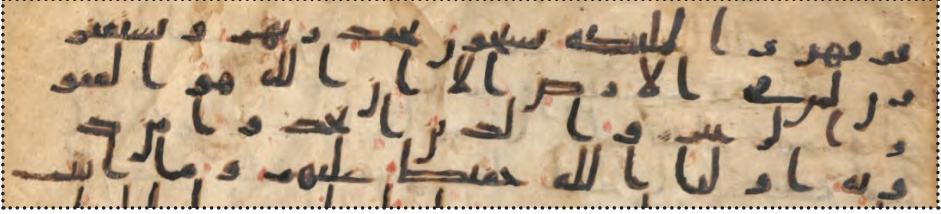 فوقهن والملئكة يسبحون بحمد ربهم ويستغفر
ون لمن في الارض الا ان الله هو الغفو
ر الرحيم والذين اتخذوا من د
ونه اوليا الله حفيظ عليهم وما انت